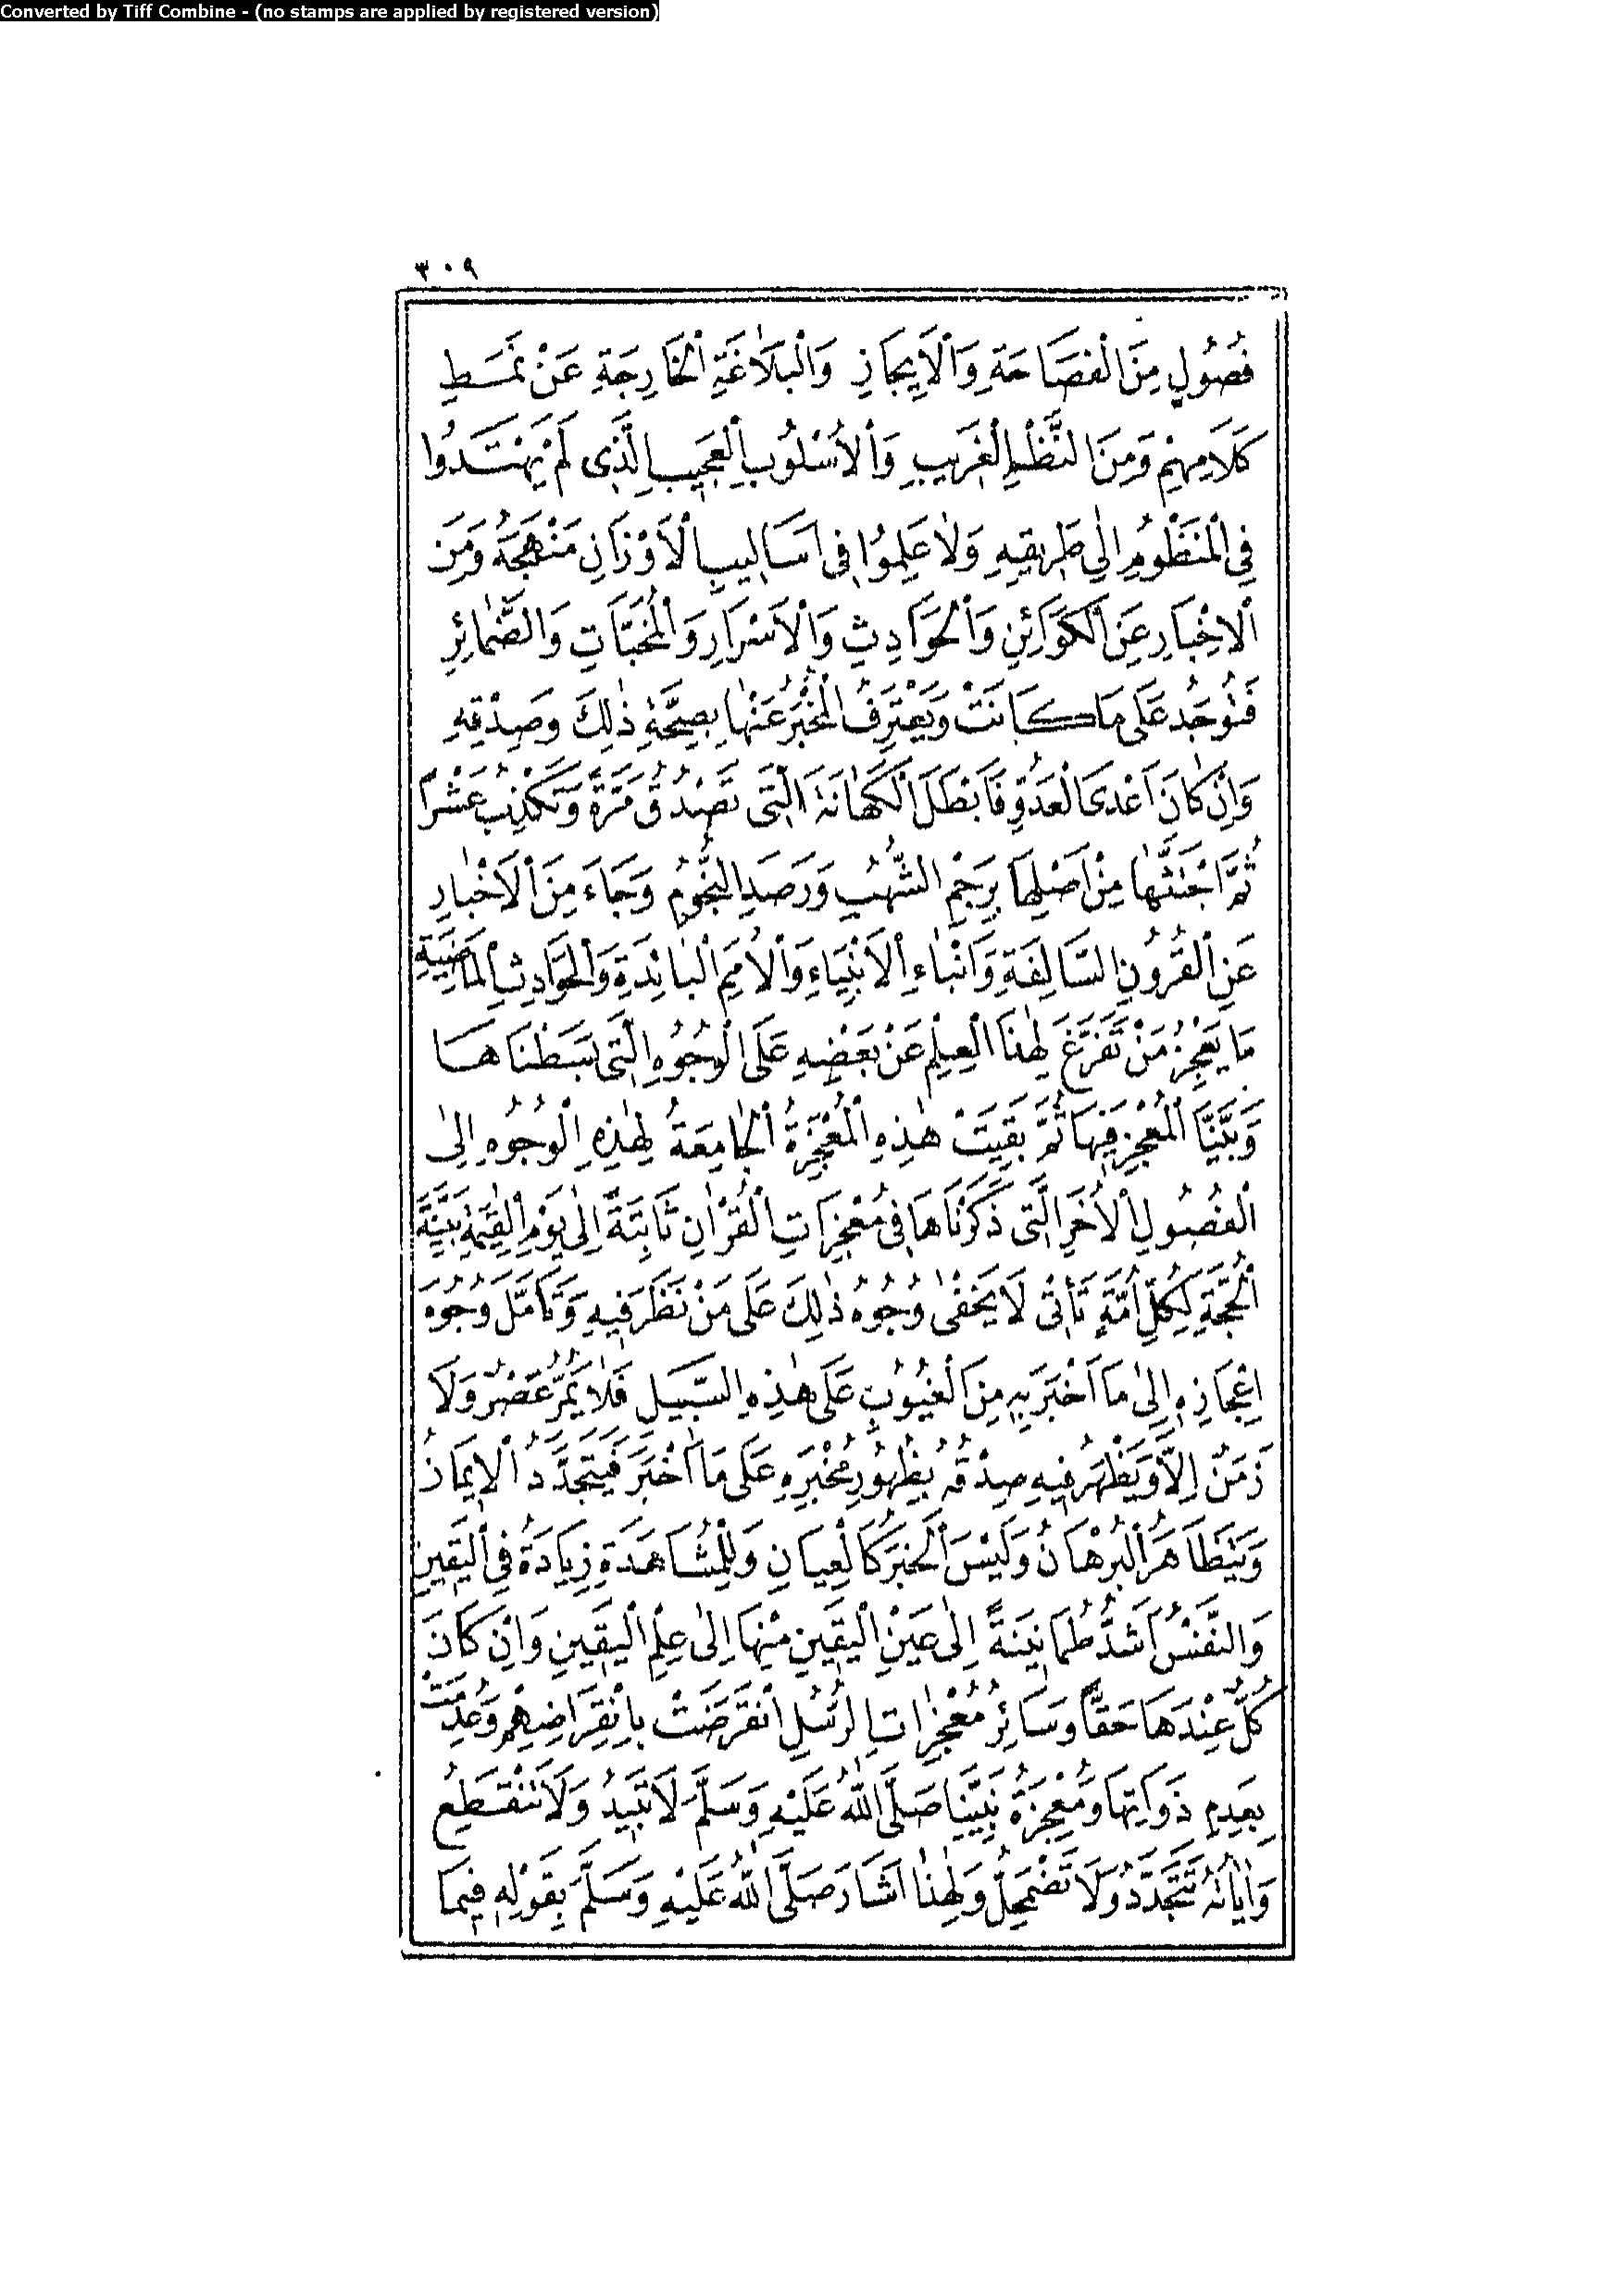 Converted by Tiff Combine - (no stamps are applied by registered version)
٣٠٩
فُصُولٍ مِنَ الْفَصَاحَةِ وَالْاِيجَازِ وَالْبَلَاغَةِ الْخَارِجَةِ عَنْ نَمَطِ
كَلَامِهِمْ وَمِنَ النَّظْمِ الْغَرِيبِ وَالْاُسْلُوبِ الْعَجِيبِ الَّذِى لَمْ يَهْتَدُوا
فِى الْمَنْظُومِ اِلٰى طَرِيقِهِ وَلَا عَلِمُوا فِى اَسَالِيبِ الْاَوْزَانِ مَنْهَجَهُ وَمِنَ
الْاِخْبَارِ عَنِ الْكَوَائِنِ وَالْحَوَادِثِ وَالْاَسْرَارِ وَالْمُخَبَّاٰتِ وَالضَّمَائِرِ
فَتُوجَدُ عَلٰى مَا كَانَتْ وَيَعْتَرِفُ الْمُخْبَرُ عَنْهَا بِصِحَّةِ ذٰلِكَ وَصِدْقِهِ
وَاِنْ كَانَ اَعْدَى الْعَدُوِّ فَاَبْطَلَ الْكَهَانَةَ الَّتِى تَصْدُقُ مَرَّةً وَتَكْذِبُ عَشْرًا
ثُمَّ اجْتَثَّهَا مِنْ اَصْلِهَا بِرَجْمِ الشُّهُبِ وَرَصَدِ النُّجُومِ وَجَاءَ مِنَ الْاَخْبَارِ
عَنِ الْقُرُونِ السَّالِفَةِ وَاَنْبَاءِ الْاَنْبِيَاءِ وَالْاُمَمِ الْبَائِدَةِ وَالْحَوَادِثِ الْمَاضِيَةِ
مَا يَعْجِزُ مَنْ تَفَرَّغَ لِهٰذَا الْعِلْمِ عَنْ بَعْضِهِ عَلَى الْوُجُوهِ الَّتِى بَسَطْنَاهَا
وَبَيَّنَّا الْمُعْجِزَ فِيهَا ثُمَّ بَقِيَتْ هٰذِهِ الْمُعْجِزَةُ الْجَامِعَةُ لِهٰذِهِ الْوُجُوهِ اِلَى
الْفُصُولِ الْاُخَرِ الَّتِى ذَكَرْنَاهَا فِى مُعْجِزَاتِ الْقُرْاٰنِ ثَابِتَةً اِلٰى يَوْمِ الْقِيٰمَةِ بَيِّنَةَ
الْحُجَّةِ لِكُلِّ اُمَّةٍ تَأْتِى لَا يَخْفٰى وُجُوهُ ذٰلِكَ عَلٰى مَنْ نَظَرَ فِيهِ وَتَأَمَّلَ وُجُوهَ
اِعْجَازِهِ اِلٰى مَا اَخْبَرَ بِهِ مِنَ الْغُيُوبِ عَلٰى هٰذِهِ السَّبِيلِ فَلَا يَمُرُّ عَصْرٌ وَلَا
زَمَنٌ اِلَّا وَيَظْهَرُ فِيهِ صِدْقُهُ بِظُهُورِ مُخْبَرِهِ عَلٰى مَا اَخْبَرَ فَيَتَجَدَّدُ الْاِيمَانُ
وَيَتَظَاهَرُ الْبُرْهَانُ وَلَيْسَ الْخَبَرُ كَالْعِيَانِ وَلِلْمُشَاهَدَةِ زِيَادَةٌ فِى الْيَقِينِ
وَالنَّفْسُ اَشَدُّ طُمَانِينَةً اِلٰى عَيْنِ الْيَقِينِ مِنْهَا اِلٰى عِلْمِ الْيَقِينِ وَاِنْ كَانَ
كُلٌّ عِنْدَهَا حَقًّا وَسَائِرُ مُعْجِزَاتِ الرُّسُلِ انْقَرَضَتْ بِانْقِرَاضِهِمْ وَعُدِمَتْ
بِعَدَمِ ذَوَاتِهَا وَمُعْجِزَةُ نَبِيِّنَا صَلَّى اللّٰهُ عَلَيْهِ وَسَلَّمَ لَا تَبِيدُ وَلَا تَنْقَطِعُ
وَاٰيَاتُهُ تَتَجَدَّدُ وَلَا تَضْمَحِلُّ وَلِهٰذَا اَشَارَ صَلَّى اللّٰهُ عَلَيْهِ وَسَلَّمَ بِقَوْلِهِ فِيمَا